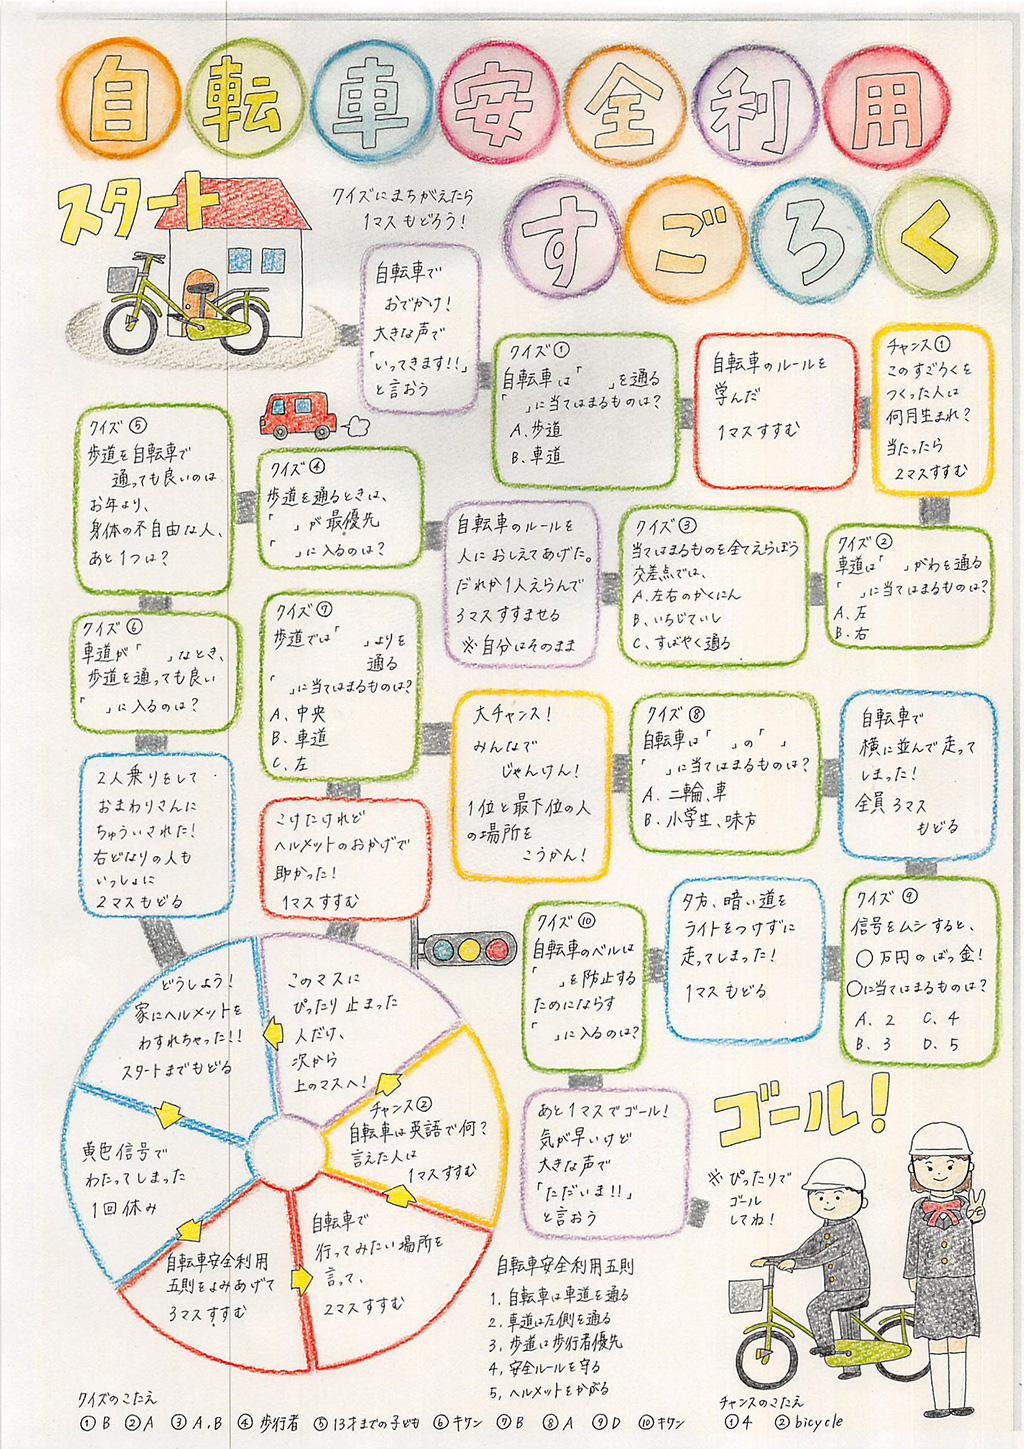 自転車安全利用
すごろく
スタート
クイズにまちがえたら
1マスもどろう!
自転車で
おでかけ!
大きな声で
「いってきます!!」
と言おう
クイズ①
自転車は「　」を通る
「　」に当てはまるものは?
A.歩道
B.車道
自転車のルールを
学んだ
1マスすすむ
チャンス①
このすごろくを
つくった人は
何月生まれ?
当たったら
2マスすすむ
クイズ②
車道は「　」がわを通る
「　」に当てはまるものは?
A.左
B.右
クイズ③
当てはまるものを全てえらぼう
交差点では、
A.左右のかくにん
B、いちじていし
C、すばやく通る
自転車のルールを
人におしえてあげた。
だれか1人えらんで
3マスすすませる
※自分はそのまま
クイズ④
歩道を通るときは、
「　」が最優先
「　」に入るのは?
クイズ⑤
歩道を自転車で
通っても良いのは
お年より、
身体の不自由な人、
あと1つは?
クイズ⑥
車道が「　」なとき、
歩道を通っても良い
「　」に入るのは?
2人乗りをして
おまわりさんに
ちゅういされた!
右どなりの人も
いっしょに
2マスもどる
どうしよう!
家にヘルメットを
わすれちゃった!!
スタートまでもどる
このマスに
ぴったり止まった
人だけ、
次から
上のマスへ!
チャンス②
自転車は英語で何?
言えた人は
1マスすすむ
自転車で
行ってみたい場所を
言って、
2マスすすむ
自転車安全利用
五則をよみあげて
3マスすすむ
黄色信号で
わたってしまった
1回休み
こけたけれど
ヘルメットのおかげで
助かった!
1マスすすむ
クイズ⑦
歩道では「　」よりを
通る
「　」に当てはまるものは?
A、中央
B、車道
C、左
大チャンス!
みんなで
じゃんけん!
1位と最下位の人
の場所を
こうかん!
クイズ⑧
自転車は「　」の「　」
「　」に当てはまるものは?
A、二輪、車
B、小学生、味方
自転車で
横に並んで走って
しまった!
全員3マス
もどる
クイズ⑨
信号をムシすると、
○万円のばっ金!
○に当てはまるものは?
A、2　C、4
B、3　D、5
夕方、暗い道を
ライトをつけずに
走ってしまった!
1マスもどる
クイズ⑩
自転車のベルは
「　」を防止する
ためにならす
「　」に入るのは?
あと1マスでゴール!
気が早いけど
大きな声で
「ただいま!!」
と言おう
ゴール!
※ぴったりで
ゴール
してね!
自転車安全利用五則
1、自転車は車道を通る
2、車道は左側を通る
3、歩道は歩行者優先
4、安全ルールを守る
5、ヘルメットをかぶる
クイズのこたえ
①B ②A ③A、B ④歩行者 ⑤13才までの子ども ⑥キケン ⑦B ⑧A ⑨D ⑩キケン
チャンスのこたえ
①4 ②bicycle